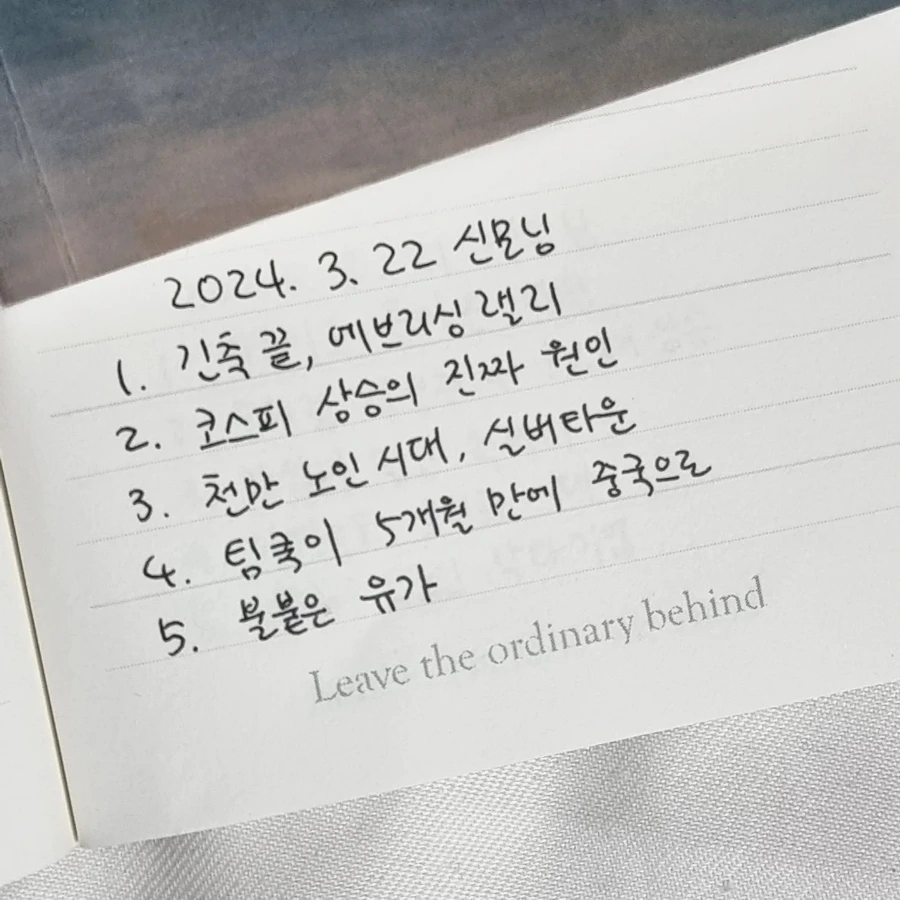 2024. 3. 22 신모닝
1. 긴축 끝, 에브리싱 랠리
2. 코스피 상승의 진짜 원인
3. 천만 노인 시대, 실버타운
4. 팀쿡이 5개월 만에 중국으로
5. 불붙은 유가
Leave the ordinary behind